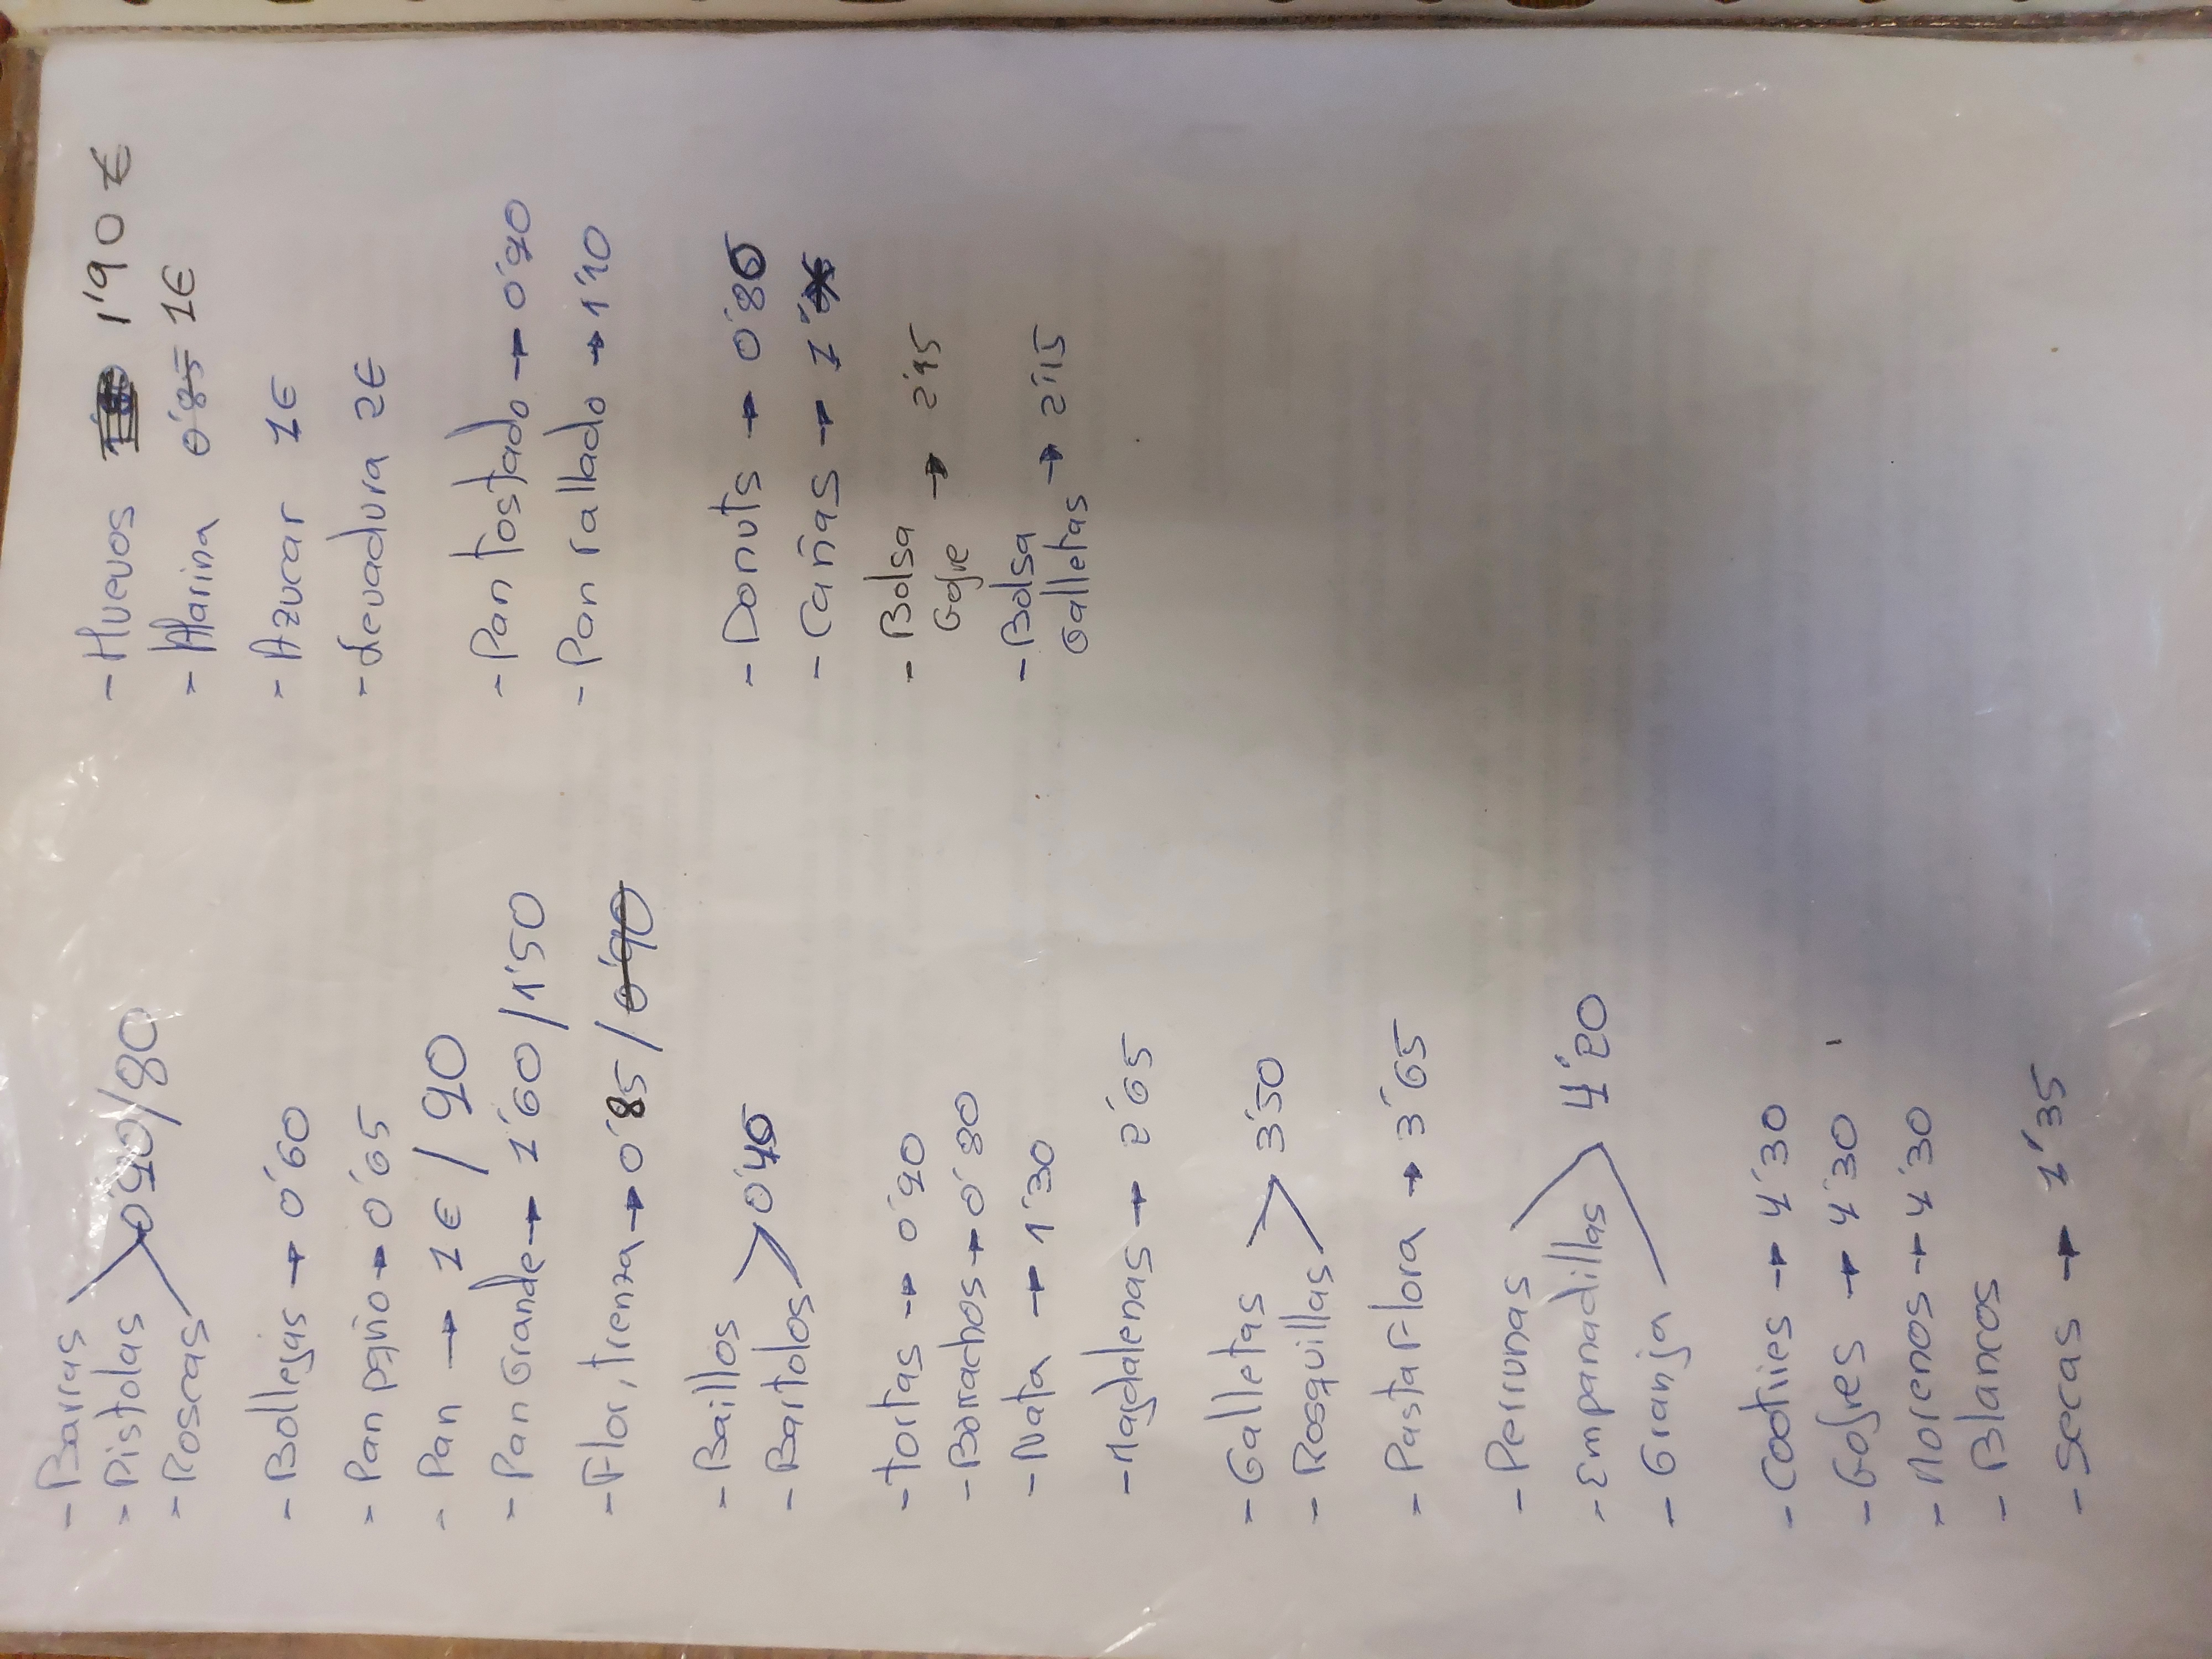 - Barras
- Pistolas 0'90/80
- Roscas
- Bollejas → 0'60
- Pan pqño → 0'65
- Pan → 1€ / 90
- Pan Grande → 1'60/1'50
- Flor, trenza → 0'85 / 0'90
- Baillos
- Bartolos 0'45
- Tortas → 0'90
- Borrachos → 0'80
- Nata → 1'30
- Magdalenas → 2'65
- Galletas
- Rosquillas 3'50
- Pastar Flora → 3'65
- Perrunas
- Empanadillas 4'20
- Granja
- Cookies → 4'30
- Gofres → 4'30
- Morenos → 4'30
- Blancos
- Secas → 1'35
- Huevos 1'90 €
- Harina 0'85 1€
- Azucar 1€
- Levadura 2€
- Pan tostado → 0'90
- Pan rallado → 1'10
- Donuts → 0'85
- Cañas → 1'
- Bolsa
Gofre → 2'15
- Bolsa
Galletas → 2'15